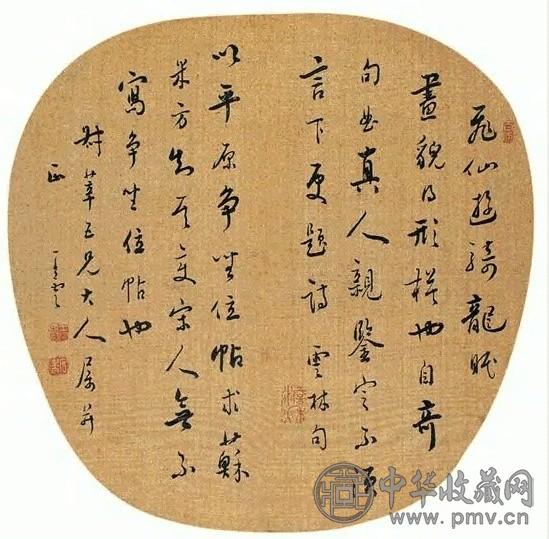 飛仙遊騎龍眠
畫貌得形模也自奇
句曲真人親鑒定不須
言下更題詩 雲林句
以平原爭坐位帖求蘇
米方知其變宋人無不
寫爭坐位帖也
五兄大人屬并
正
中华收藏网
www.pmv.cn